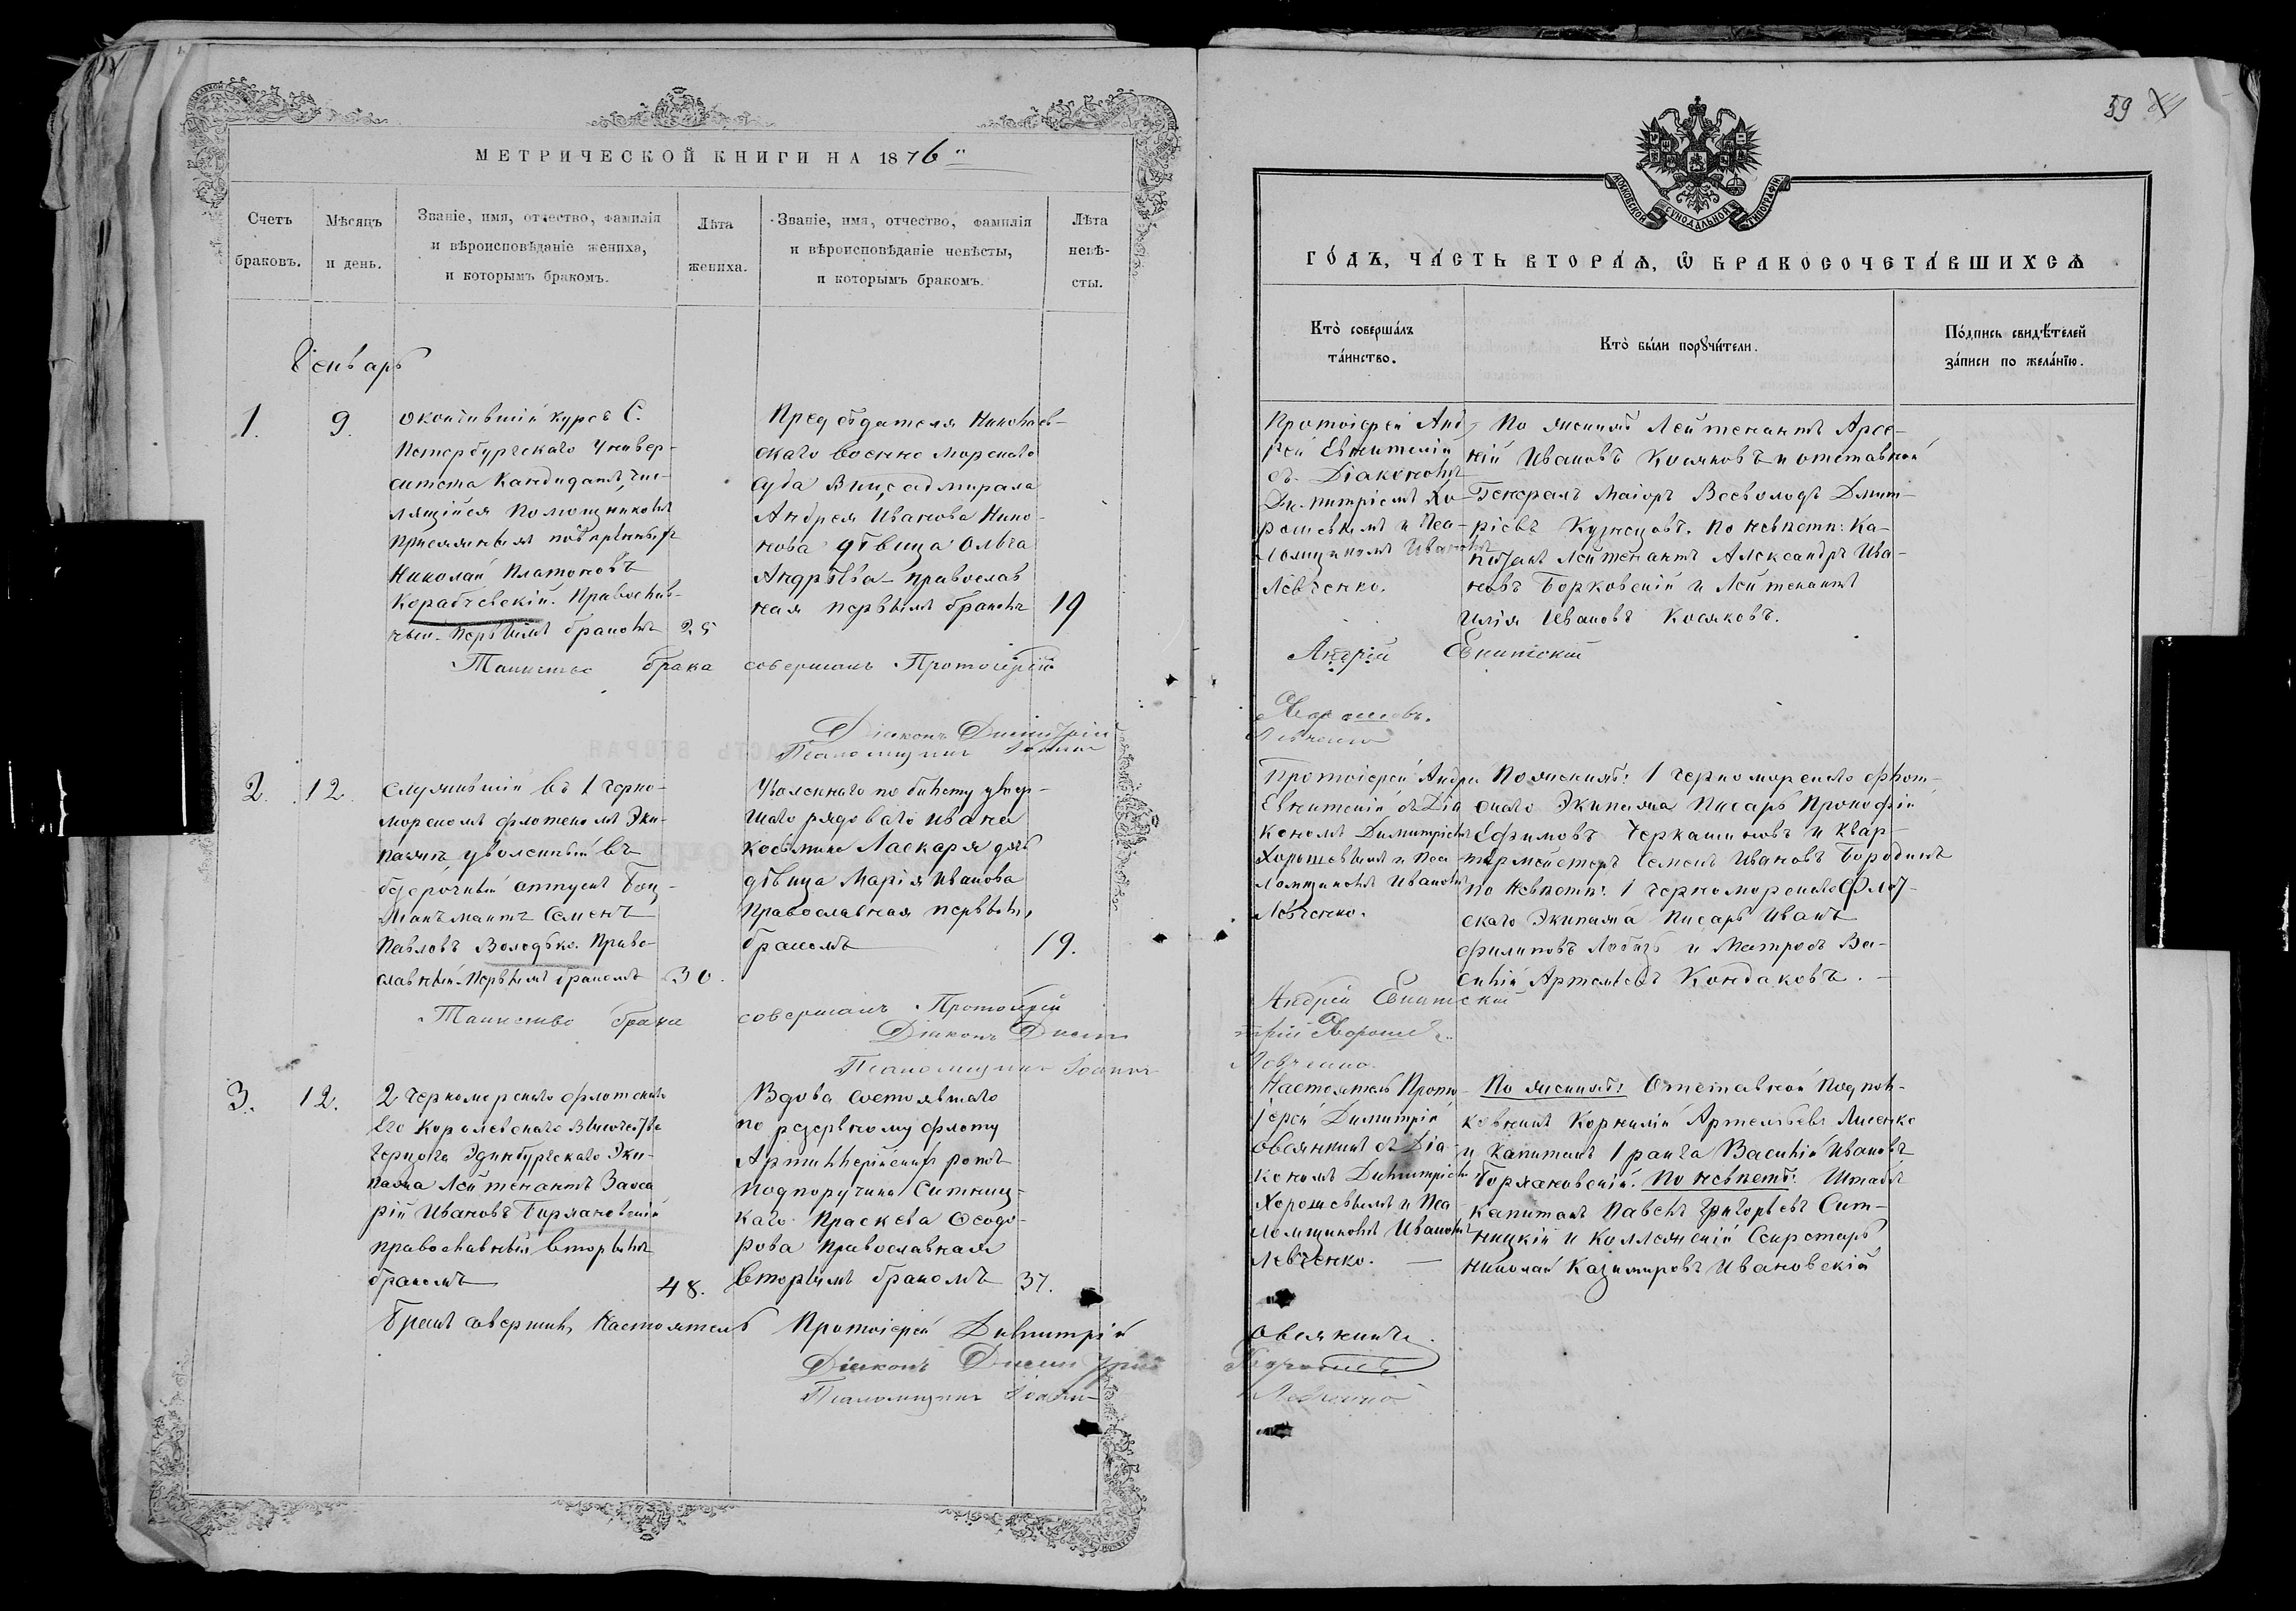 МЕТРИЧЕСКОЙ КНИГИ НА 1876
Счетъ браковъ.
Мѣсяцъ и день.
Званіе, имя, отчество, фамилія
и вѣроисповѣданіе жениха,
и которымъ бракомъ.
Лѣта
жениха.
Званіе, имя, отчество, фамилія
и вѣроисповѣданіе невѣсты,
и которымъ бракомъ.
Лѣта
невѣ-
сты.
Январь
1.
9.
окончившій курсъ С.
Петербургскаго Универ-
ситета Кандидатъ, чис-
лящійся Помощникомъ
Присяжныхъ повѣренныхъ
Николай Платоновъ
Карабчевскій. Православ-
ный. Первымъ бракомъ
25
Предсѣдателя Николаев-
скаго военно морскаго
суда Вице адмирала
Андрея Иванова Нико-
нова дѣвица Ольга
Андрѣева Православ
ная первымъ бракомъ
19
Таинство брака совершалъ Протоіерей
Діаконъ Димитрій
Псаломщикъ Іоаннъ
2.
12.
Служившій въ 1 Черно-
морскомъ флотскомъ Эки-
пажѣ уволенный въ
безсрочный отпускъ Боц-
манъ матъ Семенъ
Павловъ Володько. Право-
славный. Первымъ бракомъ
30.
Уволеннаго по билету умер-
шаго рядоваго Ивана
Косьмина Ласкаря дочь
дѣвица Марія Иванова
Православная первымъ
бракомъ
19.
Таинство брака совершалъ Протоіерей
Діаконъ Дими
Псаломщикъ Іоаннъ
3.
12.
2 Черноморскаго флотскаго
Его Королевскаго Высочества
Герцога Эдинбургскаго Эки-
пажа Лейтенантъ Заха
рій Ивановъ Боржановскій
православный вторымъ
бракомъ
48.
Вдова Состоявшаго
по резервному флоту
Артиллерійскихъ ротъ
Подпоручика Ситниц-
каго Праскева Ѳеодо-
рова Православная
вторымъ бракомъ
37.
Бракъ совершилъ Настоятель Протоіерей Димитрій
Діаконъ Димитрій
Псаломщикъ Іоаннъ
59
МОСКОВСКОЙ СѴНОДАЛЬНОЙ ТИПОГРАФІИ
ГО́ДЪ, ЧА́СТЬ ВТОРА́Ѧ, Ѽ БРАКОСОЧЕТА́ВШИХСѦ
Кто̀ соверша́лъ
та́инство.
Кто̀ бы́ли порꙋчи́тели.
По́дпись свидѣ́телей
за́писи по жела́нїю.
Протоіерей Анд
рей Евнитскій
съ Діакономъ
Димитріемъ Хо-
рошевымъ и Пса-
ломщикомъ Иваномъ
Левченко.
По женихѣ Лейтенантъ Арсе-
ній Ивановъ Косяковъ и отставной
Генералъ Маіоръ Всеволодъ Дмит-
ріевъ Кузнецовъ. По невѣстѣ: Ка-
питанъ Лейтенантъ Александръ Ива-
новъ Борковскій и Лейтенантъ
Илія Ивановъ Косяковъ.
Андрей Евнитскій
Хорошевъ.
Левченко
Протоіерей Андрей
Евнитскій съ Діа
кономъ Димитріемъ
Хорошевымъ и Пса
ломщикомъ Иваномъ
Левченко.
По женихѣ: 1 Черноморскаго флот-
скаго Экипажа Писарь Прокофій
Ефимовъ Черкашиновъ и Квар-
тирмейстеръ Семенъ Ивановъ Бородинъ
по Невѣстѣ: 1 Черноморскаго Флот-
скаго Экипажа Писарь Иванъ
Филиповъ и Матросъ Ва-
силій Артемьевъ Кондаковъ.
Андрей Евнитскій
трій Хорошевъ.
Левченко.
Настоятель Прото-
іерей Димитрій
Овсянкинъ съ Діа-
кономъ Димитріемъ
Хорошевымъ и Пса
ломщикомъ Иваномъ
Левченко.
По женихѣ: Отставной Подпол-
ковникъ Корнилій Артемьевъ Лисенко
и Капитанъ 1 ранга Василій Ивановъ
Боржановскій. По невѣстѣ: Штабсъ
капитанъ Павелъ Григорьевъ Сит-
ницкій и Коллежскій Секретарь
Николай Казимировъ Ивановскій
Овсянкинъ.
Хорошевъ
Левченко